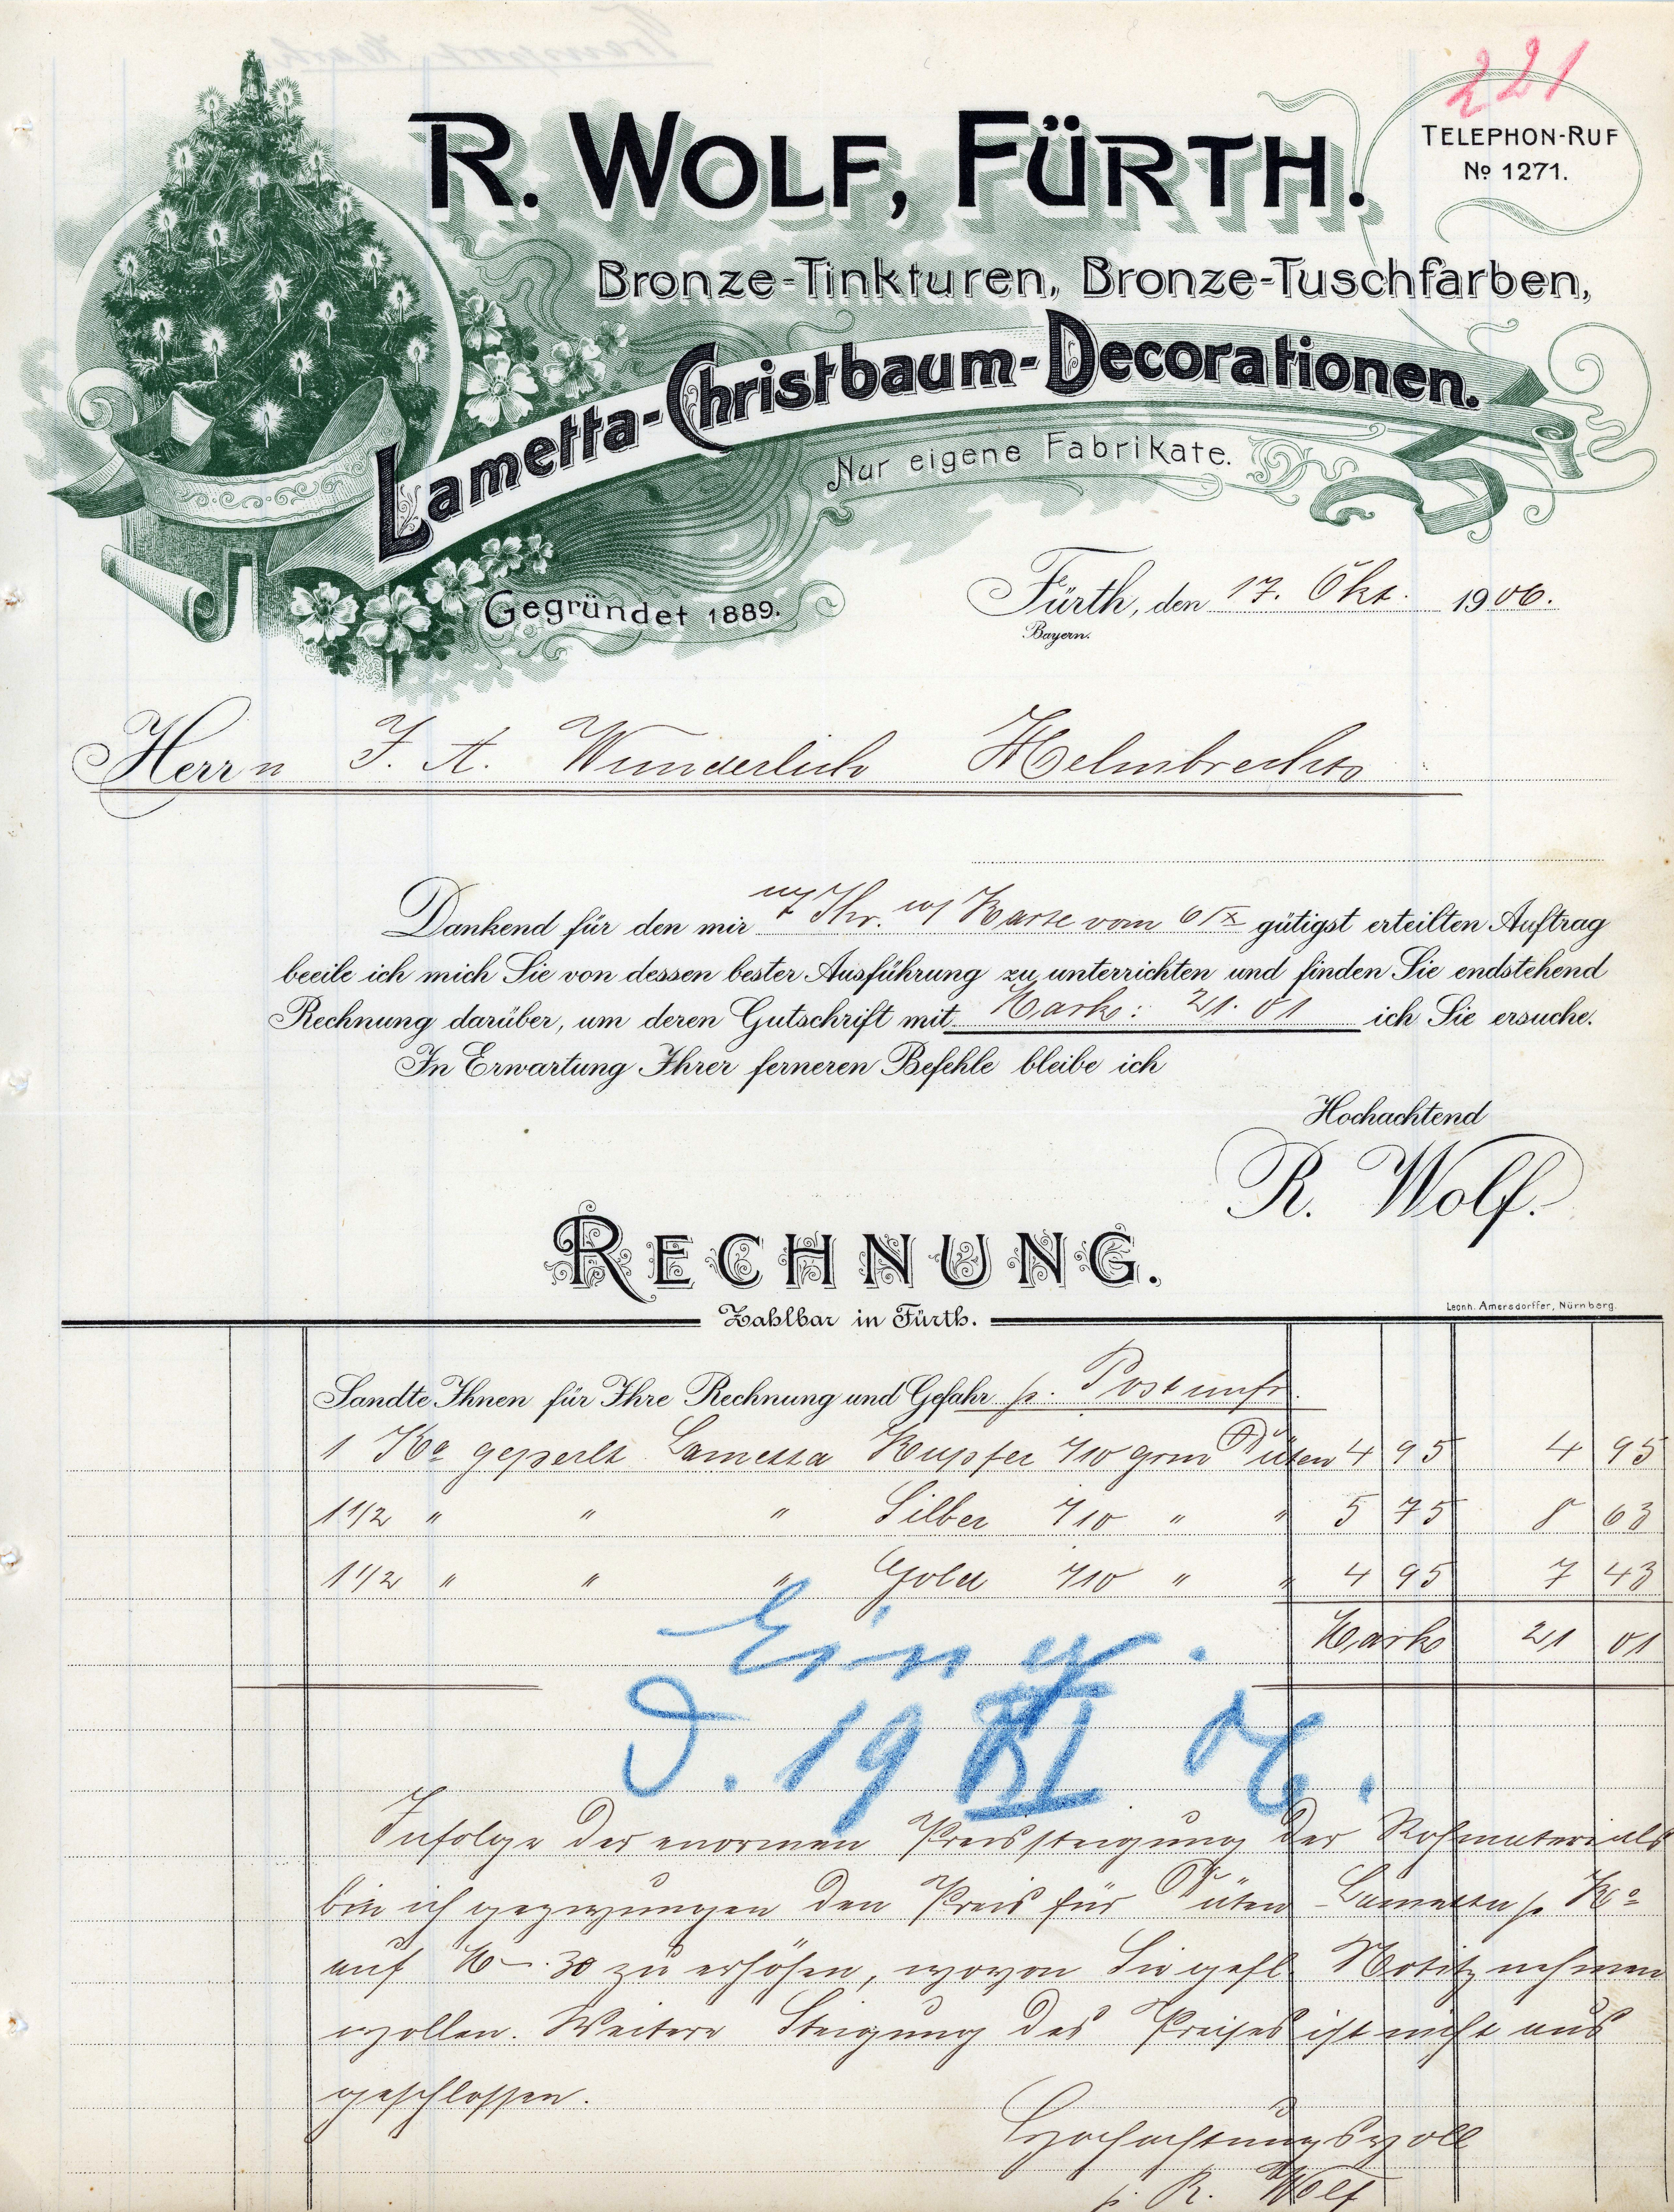 221
TELEPHON-RUF
No 1271.
R. WOLF, FÜRTH.
Bronze-Tinkturen, Bronze-Tuschfarben,
Lametta-Christbaum-Decorationen.
Nur eigene Fabrikate.
Gegründet 1889.
Fürth, den 17. Okt. 1906.
Bayern.
Herrn J. A. Wunderlich Helmbrechts
Dankend für den mir Ihr. Karte vom 6/X gütigst erteilten Auftrag
beeile ich mich Sie von dessen bester Ausführung zu unterrichten und finden Sie endstehend
Rechnung darüber, um deren Gutschrift mit Mark: 21.01 ich Sie ersuche.
In Erwartung Ihrer ferneren Befehle bleibe ich
Hochachtend
R. Wolf.
RECHNUNG.
Leonh. Amersdorffer, Nürnberg.
Zahlbar in Fürth.
Sandte Ihnen für Ihre Rechnung und Gefahr p. Post unfr.
1 Ko geperlt Lametta Kupfer 710 grm Düten 4 95 4 95
1 1/2 " " " Silber 710 " " 5 75 8 63
1 1/2 " " " Gold 710 " " 4 95 7 43
Mark 21 01
Eing.
d. 19 XI 06.
Infolge der enormen Preissteigung der Rohmaterials
bin ich gezwungen den Preis für Düten-Lametta p Ko
auf M -.30 zu erhöhen, wovon Sie gefl. Notitz nehmen
wollen. Weitere Steigung des Preises ist nicht aus
geschlossen.
Hochachtungsvoll
p. R. Wolf